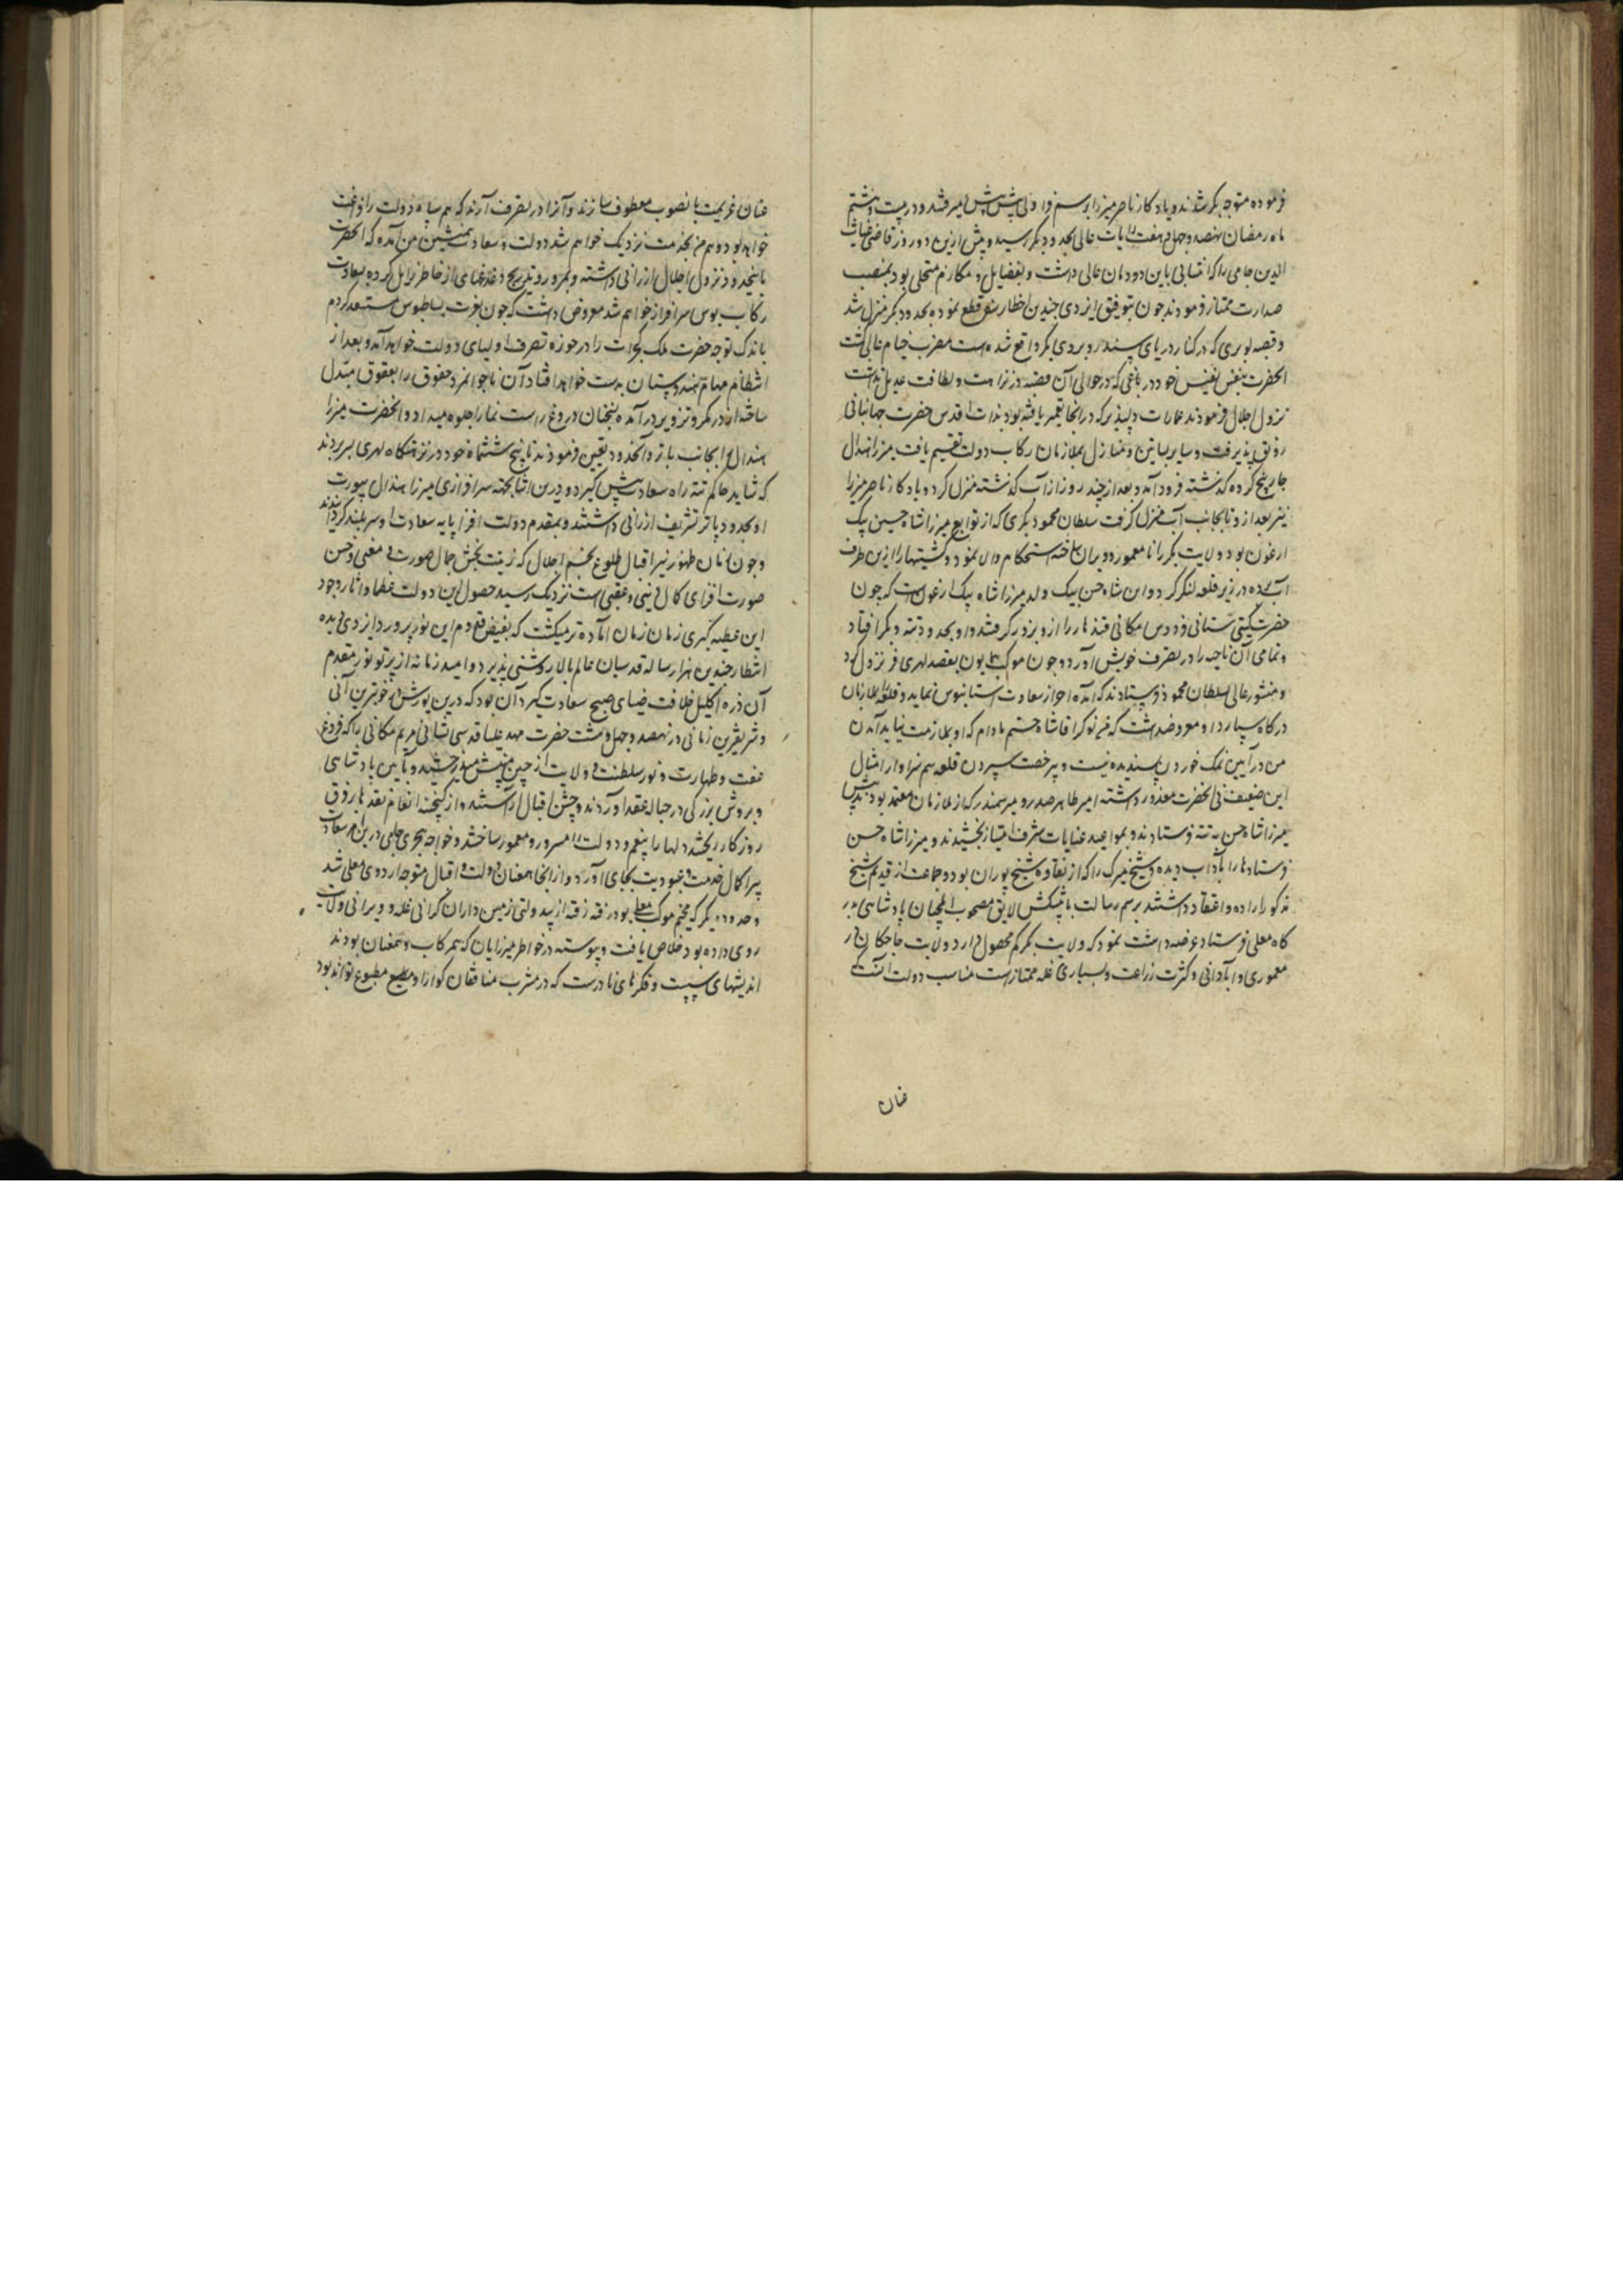 فرموده متوجه بکر شدند و یادکار ناصر میرزا برسم قراولی پیش پیش میرفتند و در بیست و هشتم
ماه رمضان نهصد و چهل و هفت رایات عالی بحدود بکر رسید و پیش ازین دو روز قاضی غیاث
الدین جامی را که انتسابی باین دودمان عالی داشت و بفضایل و مکارم متحلی بود بمنصب
صدارت ممتاز فرمودند چون بتوفیق ایزدی چندین اخطار سفر قطع نموده بحدود بکر منزل شد
و قصبه لوهری که در کنار دریای سند روبروی بکر واقع شده است مضرب خیام عالی کشت
انحضرت بنفس نفیس خود در باغی که در حوالی آن قصبه در نزاهت و لطافت عدیل نداشت
نزول اجلال فرمودند عمارات دلپذیر که در انجا تعمیر یافته بود بذات اقدس حضرت جهانبانی
رونق پذیرفت و سایر بساتین و منازل بملازمان رکاب دولت تقسیم یافت میرزا هندال
چار پنج کروه کذشته فرود آمد و بعد از چند روز از آب کذشته منزل کرد و یادکار ناصر میرزا
نیز بعد از و بانجانب آب منزل کرفت سلطان محمود بکری که از توابع میرزا شاه حسین بیک
ارغون بود ولایت بکر را نامعمور و ویران ساخته استحکام داده نمود و کشتیها را ازین طرف
آب برده در زیر قلعه لنکر کرد و این شاه حسن بیک ولد میرزا شاه بیک ارغون است که چون
حضرت کیتی ستانی فردوس مکانی قندهار را از و بزور کرفتند او بحدود تته و بکر افتاد
و تمامی آن ناحیه را در تصرف خویش آورد و چون موکب همایون بقصبه لهری نزول کرد
و منشور عالی بسلطان محمود فرستادند که آمده احراز سعادت آستانبوس نماید و قلعه را بملازمان
درکاه سپارد او معروضداشت که من نوکر شاه حسینم مادام که او بملازمت نیاید آمدن
من در آیین نمک خوردن پسندیده نیست و بیرخصت سپردن قلعه هم سزاوار امثال
این ضعیف نی انحضرت معذور داشته امیر طاهر صدر و میر سمندر که از ملازمان معتمد بودند پیش
میرزا شاه حسن به تته فرستادند و بمواعید عنایات شرف امتیاز بخشیدند و میرزا شاه حسن
فرستادها را بآداب دیده و شیخ میرک را که از نقاوه شیخ پوران بود و جماعت از قدیم شیخ
مذکور ارادت و اعتقاد داشتند برسم رسالت با پیشکش لایق مصحوب ایلچیان پادشاهی بدر
کاه معلی فرستاد عرضه داشت نمود که ولایت بکر کم محصول دارد ولایت چاچکان در
معموری و آبادانی و کثرت زراعت و بسیاری غله ممتاز است مناسب دولت آنست که
عنان
عنان عزیمت بانصوب معطوف سازند و آنرا در تصرف آرند که هم سپاه دولت را فراغت
خواهد بود و هم من بخدمت نزدیک خواهم شد دولت و سعادت همنشین من آمده که انحضرت
باینحدود نزول اجلال ارزانی داشته و بمرور و تدریج دغدغهای از خاطر زایل کرده بسعادت
رکاب بوس سرافراز خواهم شد معروض داشت که چون بعزت بساطبوس مستسعد کردم
باندک توجه حضرت ملک کجرات را در حوزه تصرف اولیای دولت خواهد آمد و بعد از
انتظام مهام هندوستان بدست خواهد افتاد آن ناجوانمرد حقوق را بعقوق مبدل
ساخته در مکر و تزویر درآمده سخنان دروغ راست نما را جلوه میداد و انحضرت میرزا
هندال را بجانب پاتر و آنحدود تعیین فرمودند تا پنج ششماه خود در نزهتکاه لهری بسر بردند
که شاید حاکم تته راه سعادت پیش کیرد و درین اثنا بجهت سرافرازی میرزا هندال بیورت
او بحدود پاتر تشریف ارزانی داشتند و بمقدم دولت افزا پایه سعادت او سربلند کردانیدند
و چون زمان ظهور نیر اقبال و طلوع نجم اجلال که زینت بخش جمال صورت و معنی و حسن
صورت افزای کمال دینی و عقبی است نزدیک رسید حصول این دولت عظما و اثار وجود
این عطیه کبری زمان زمان آماده تر میکشت که بفیض قدوم این نور پرورد ایزدی دیده
انتظار چندین هزار ساله قدسیان عالم بالا روشنی پذیرد و امید زمانه از پرتو نور مقدم
آن دره اکلیل خلافت ضیای صبح سعادت کیرد آن بود که درین یورش در خوبترین آنی
و شریفترین زمانی در نهصد و چهل و هشت حضرت مهد علیا قدسی نشانی مریم مکانی را که فروغ
عفت و طهارت و نور سلطنت و ولایت از جبین مبینش میدرخشید و بآیین پادشاهی
و بروش بزرکی در حباله عقد آوردند و جشن اقبال آراستند و از کنجینه انعام نقدها بفرق
روزکار ریختند دلها را بنعم و دولتها مسرور و معمور ساختند و خواجه هجری جامی درین امر سعادت
پیرا کمال خدمت و عبودیت بجای آورد و از انجا همعنان دولت و اقبال متوجه اردوی معلی شد
و حدود بکر که مخیم موکب معلی بود رفته رفته از بیدولتی زمین داران کرانی غله و ویرانی ولایت
روی داده بود خلاص یافت و پیوسته در خواطر میرزایان که همرکاب و همعنان بودند
اندیشهای سست و فکرهای نادرست که در مشرب منافقان کوارا و مطبوع تواند بود